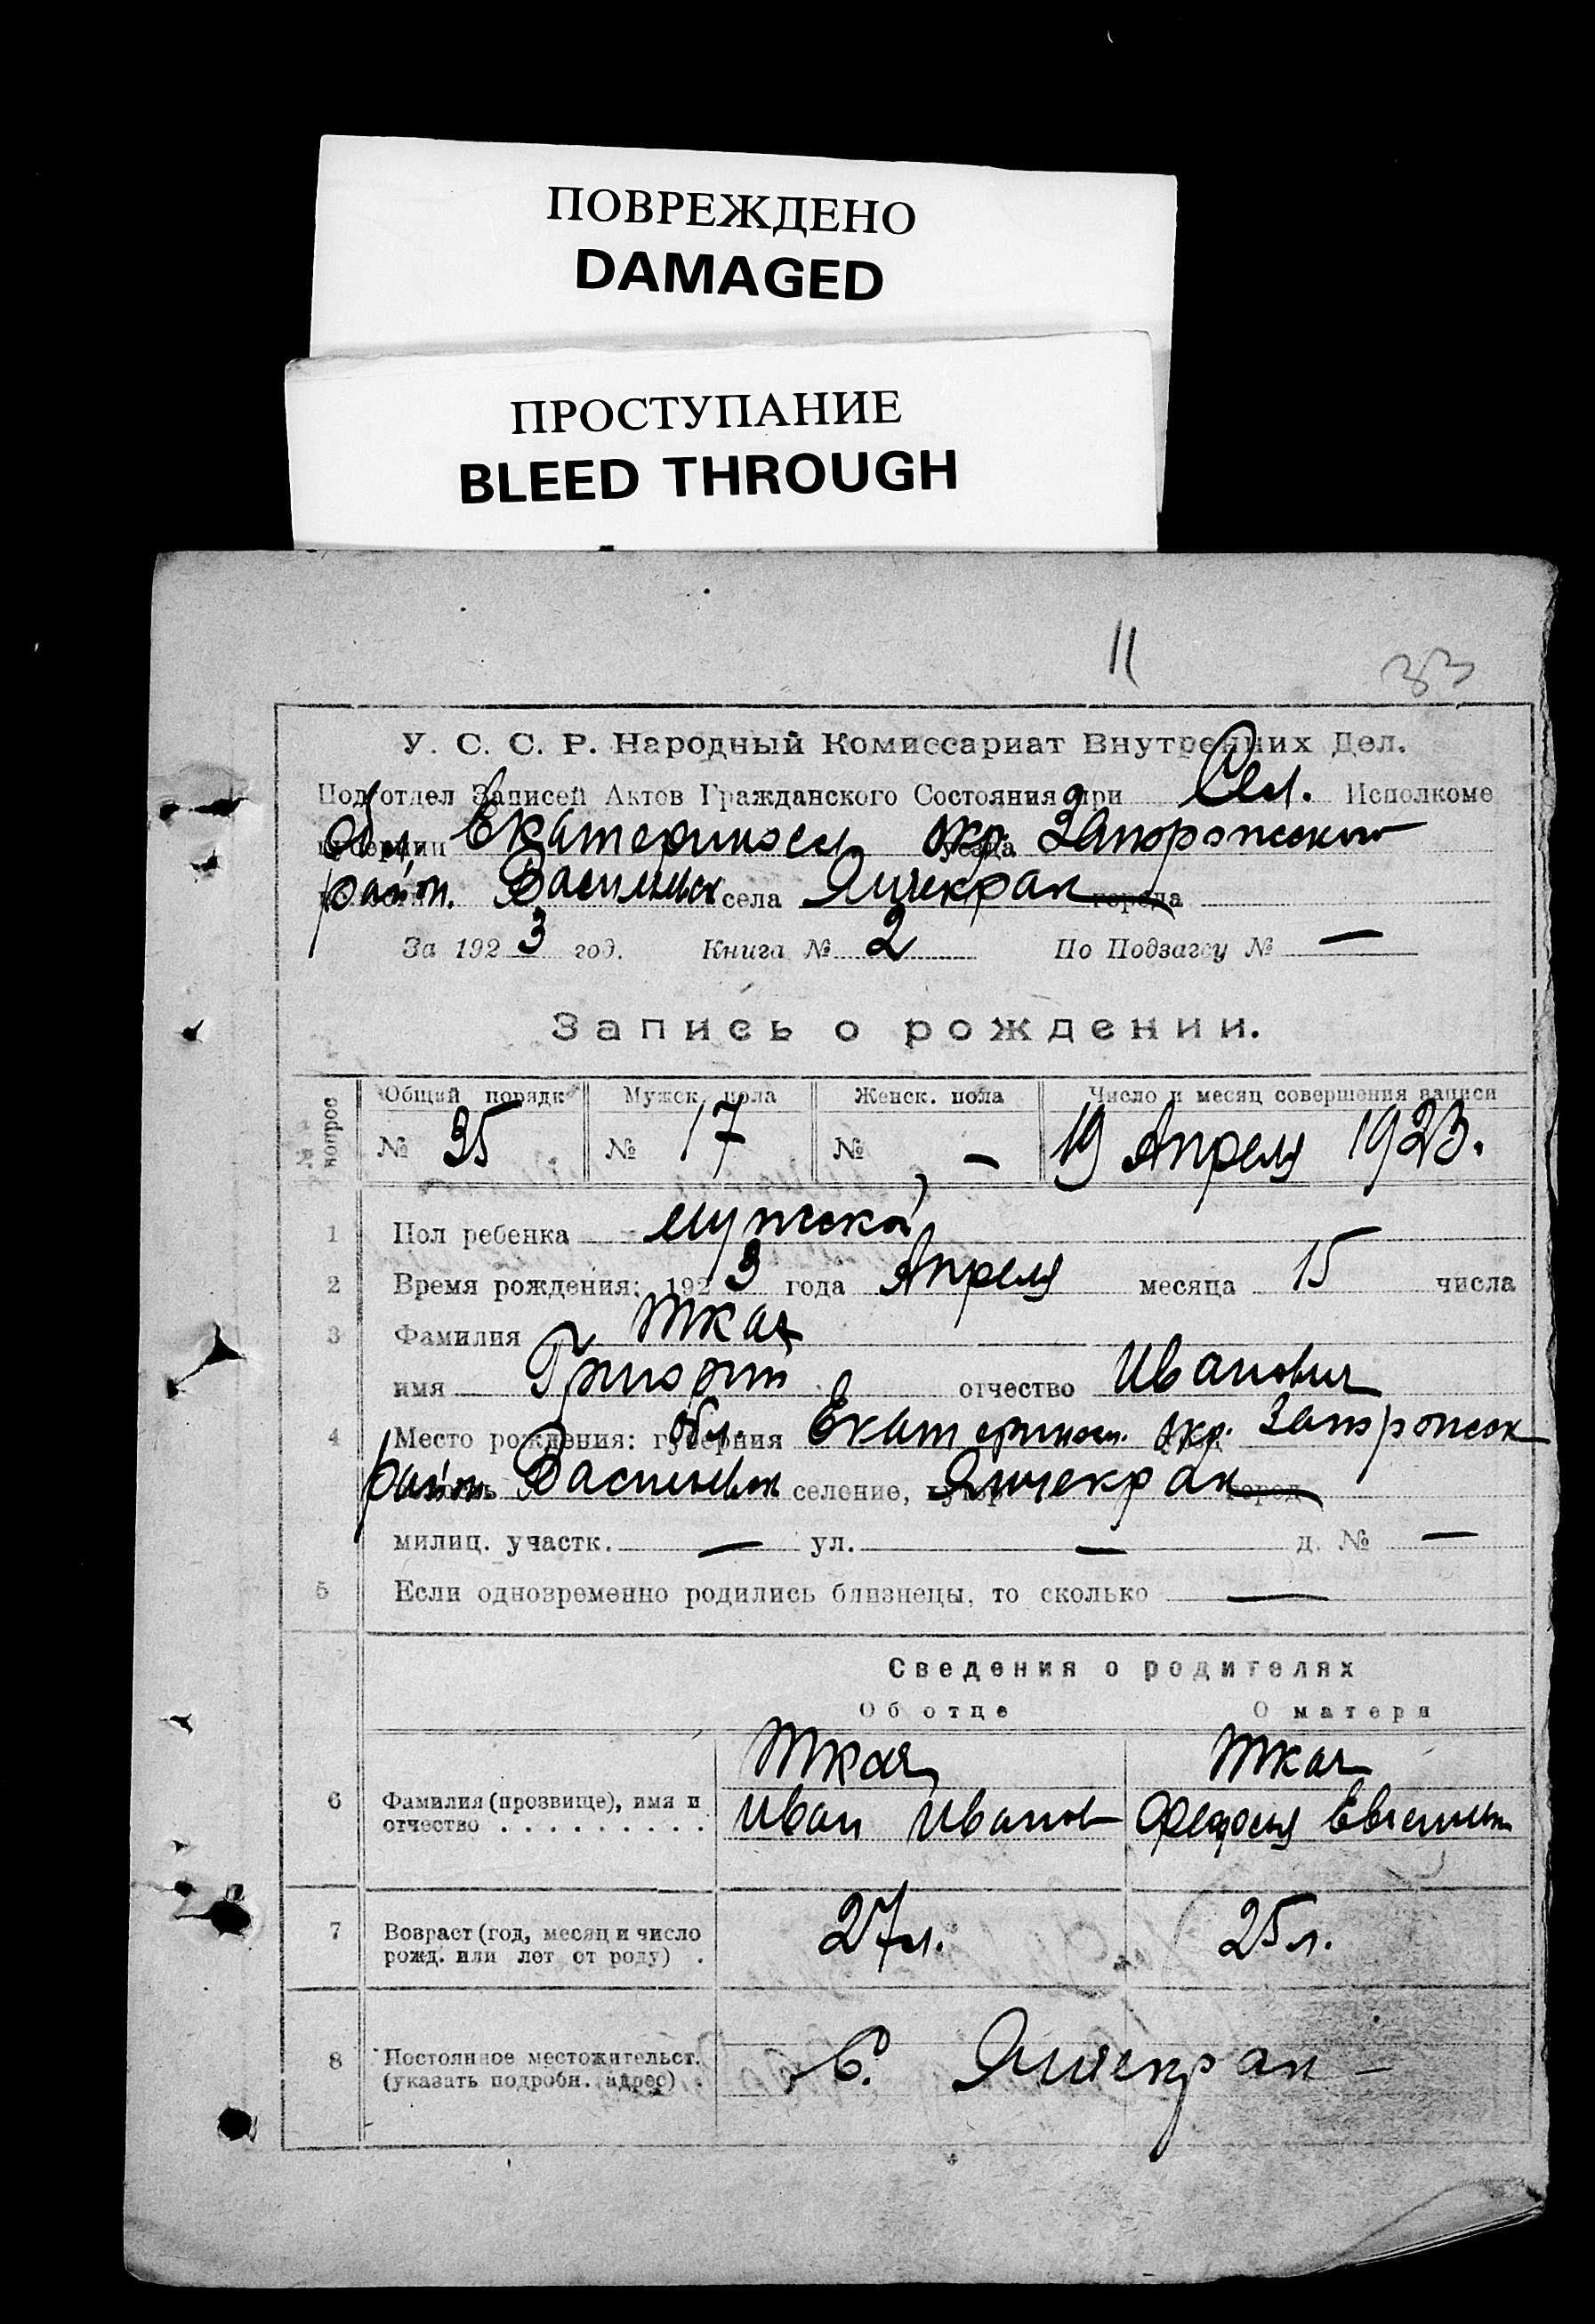 ПОВРЕЖДЕНО
DAMAGED
ПРОСТУПАНИЕ
BLEED THROUGH
11
33
У. С. С. Р. Народный Комиссариат Внутренних Дел.
Подотдел Записей Актов Гражданского Состояния при Сел. Исполкоме
Обл. Екатериносл. окр. Запорожского
район. Васильевск села Янчекрак города
За 1923 год. Книга № 2 По Подзагсу № —
Запись о рождении.
№ вопрос Общий порядк Мужск. пола Женск. пола Число и месяц совершения записи
№ 35 № 17 № — 19 Апреля 1923.
1 Пол ребенка мужской
2 Время рождения: 1923 года Апреля месяца 15 числа
3 Фамилия Ткач
имя Григорий отчество Иванович
4 Место рождения: губерния обл. Екатериносл. окр. Запорожск
район Васильевск селение, хутор Янчекрак город
милиц. участк. — ул. — д. № —
5 Если одновременно родились близнецы, то сколько —
Сведения о родителях
Об отце О матери
Ткач Ткач
6 Фамилия (прозвище), имя и отчество . . . . . . . . . Иван Иванов Федосия Евгеньев
7 Возраст (год, месяц и число рожд. или лет от роду) . 27 л. 25 л.
8 Постоянное местожительст. (указать подробн. адрес) . С. Янчекрак —